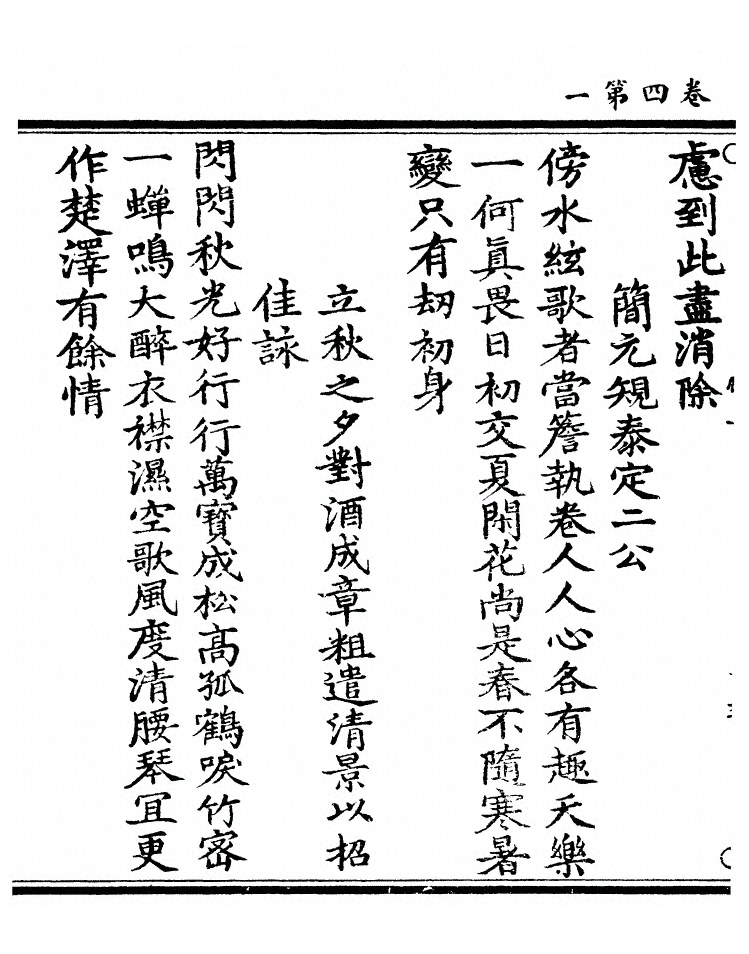 卷四第一
慮到此盡消除
簡元規泰定二公
傍水絃歌者當簷執卷人人心各有趣天樂
一何眞畏日初交夏閑花尚是春不隨寒暑
變只有劫初身
立秋之夕對酒成章粗遣清景以招
佳詠
閃閃秋光好行行萬寶成松高孤鶴唳竹密
一蟬鳴大醉衣襟濕空歌風度清腰琴宜更
作楚澤有餘情